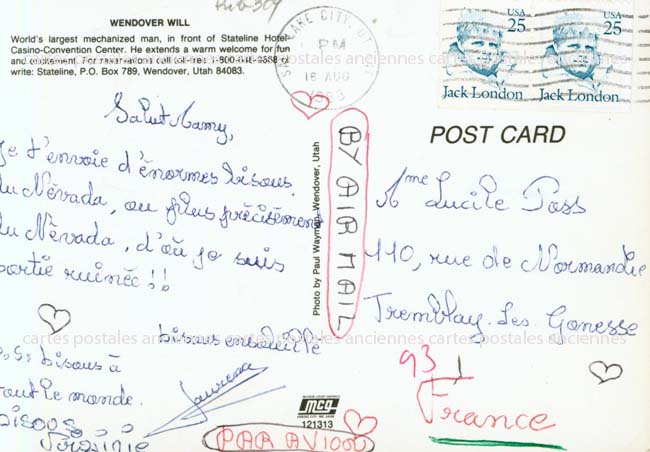 WENDOVER WILL
World's largest mechanized man, in front of Stateline Hotel
Casino-Convention Center. He extends a warm welcome for fun
and excitement. For reservations call toll-free 1-800-848-9668 or
write: Stateline, P.O. Box 789, Wendover, Utah 84083.
SALT LAKE CITY, UT
PM
18 AUG
USA 25
Jack London
USA 25
Jack London
cartes postales anciennes cartes postales anciennes cartes postales anciennes
POST CARD
Salut Mamy,
Je t'envoie d'énormes bisous
du Névada, ou plus précisément
du Névada, d'où je suis
partie ruinée !!
bisous ensoleillé
P.S: bisous à
tout le monde.
bisous
Virginie
Photo by Paul Wayman, Wendover, Utah
BY AIR MAIL
Mme Lucile Poss
110, rue de Normandie
Tremblay-Les Gonesse
93
France
cartes postales anciennes cartes postales anciennes cartes postales anciennes
mcg
121313
PAR AVION